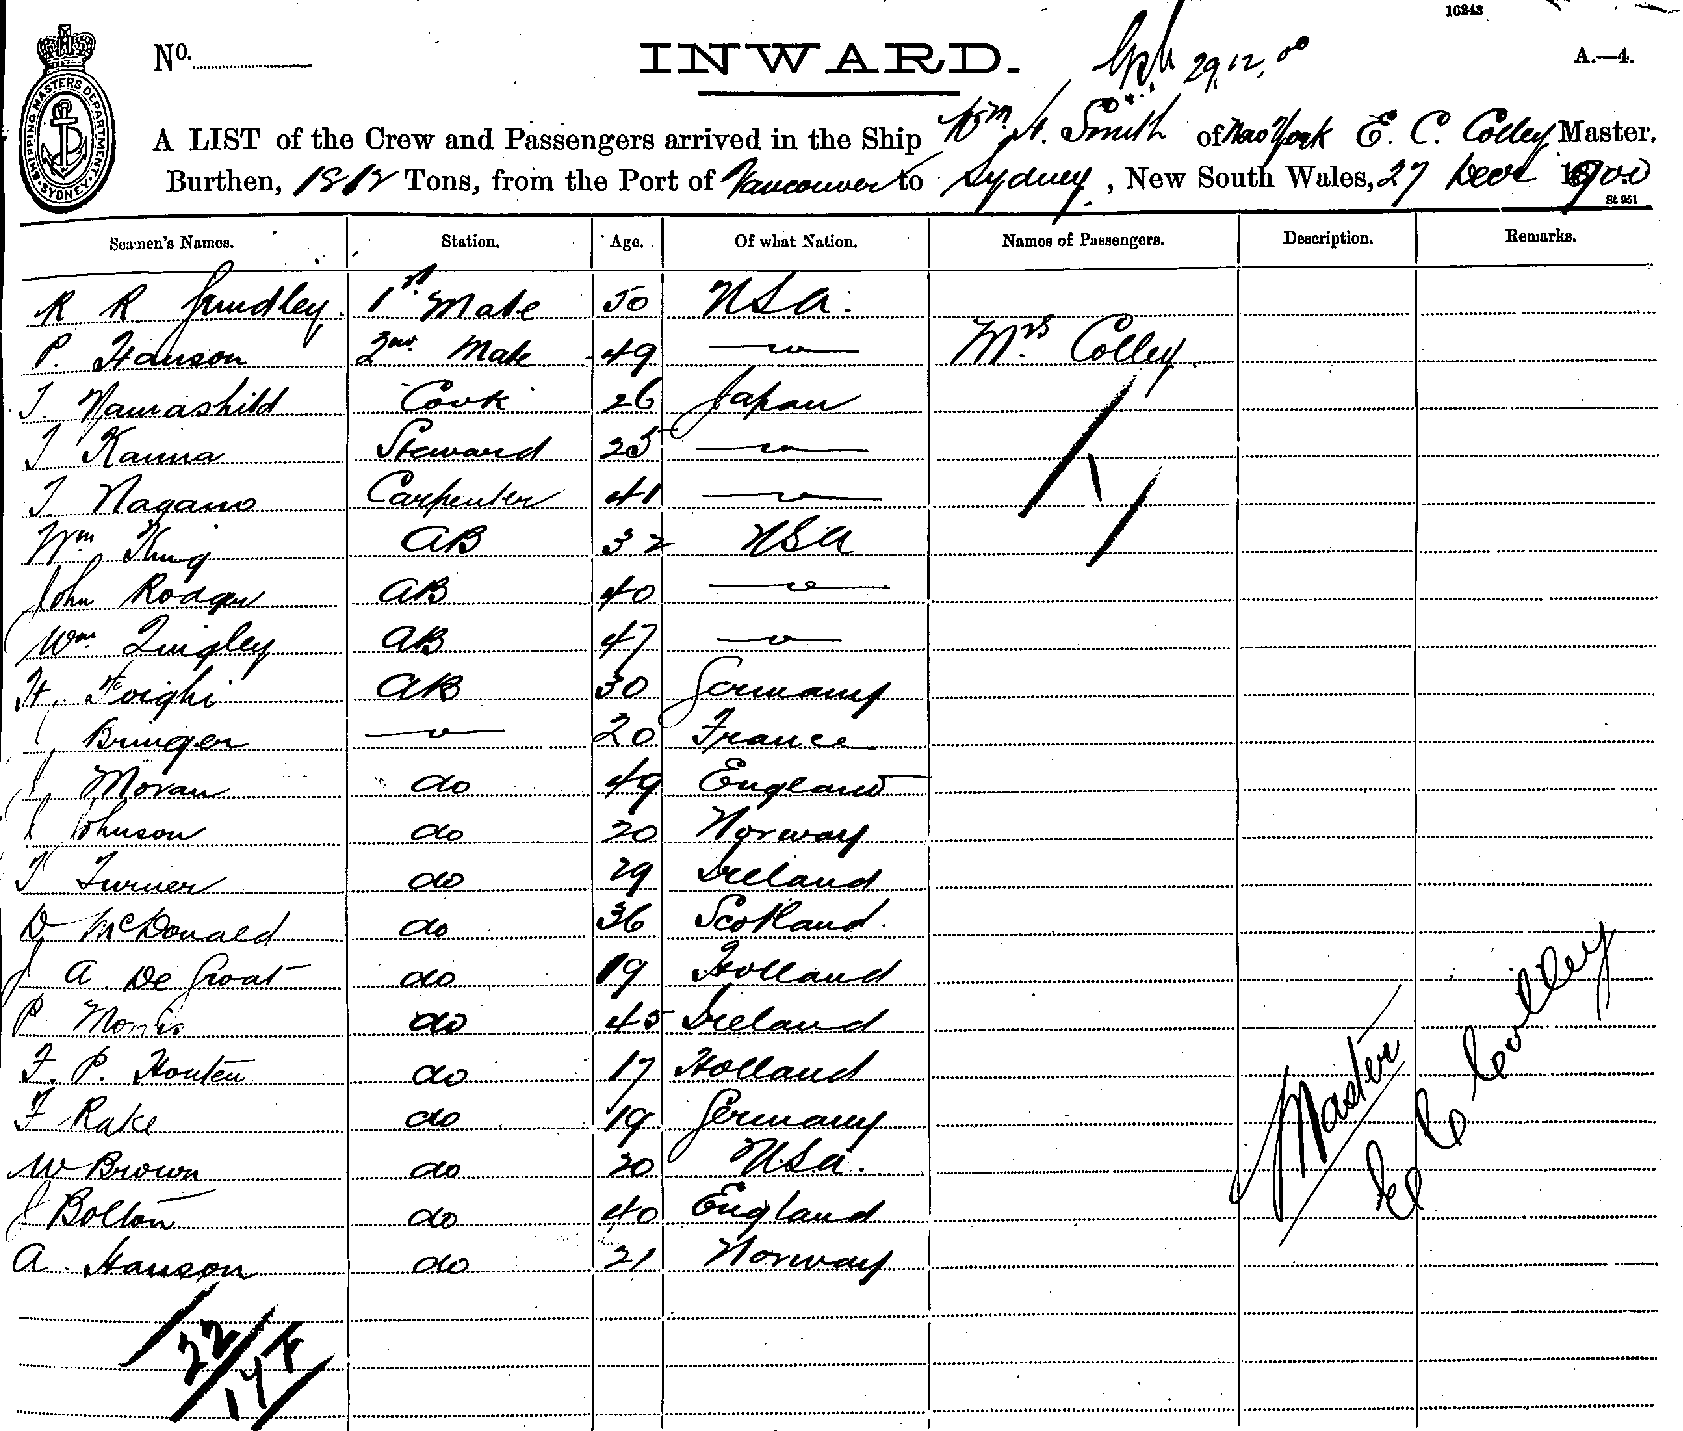 10243
No. INWARD. 29.12.00 A.—4.
SHIPPING MASTERS DEPARTMENT SYDNEY
A LIST of the Crew and Passengers arrived in the Ship Wm H. Smith of New York E. C. Colley Master,
Burthen, 1812 Tons, from the Port of Vancouver to Sydney, New South Wales, 27 Decr 1900
St 951
Seamen's Names. Station. Age. Of what Nation. Names of Passengers. Description. Remarks.
R R Grindley. 1st Mate 50 USA.
P. Hanson 2nd Mate 49 —"— Mrs Colley.
T. Cook 26 Japan
T Kanna Steward 25 —"—
T Nagano Carpenter 41 —"—
Wm King AB 32 USA
John Rodger AB 40 —"—
Wm Tingley AB 47 —"—
H. Foighi AB 30 Germany
Bringer —"— 20 France
Moran do 49 England
J Johnson do 20 Norway
T Turner do 29 Ireland
D McDonald do 36 Scotland.
J A De Groat do 19 Holland
P Morris do 45 Ireland
F. P. Houten do 17 Holland
F Rake do 19 Germany
W Brown do 20 USA.
J Bolton do 40 England
A. Hanson do 21 Norway
22/14 F
Master
E C Colley